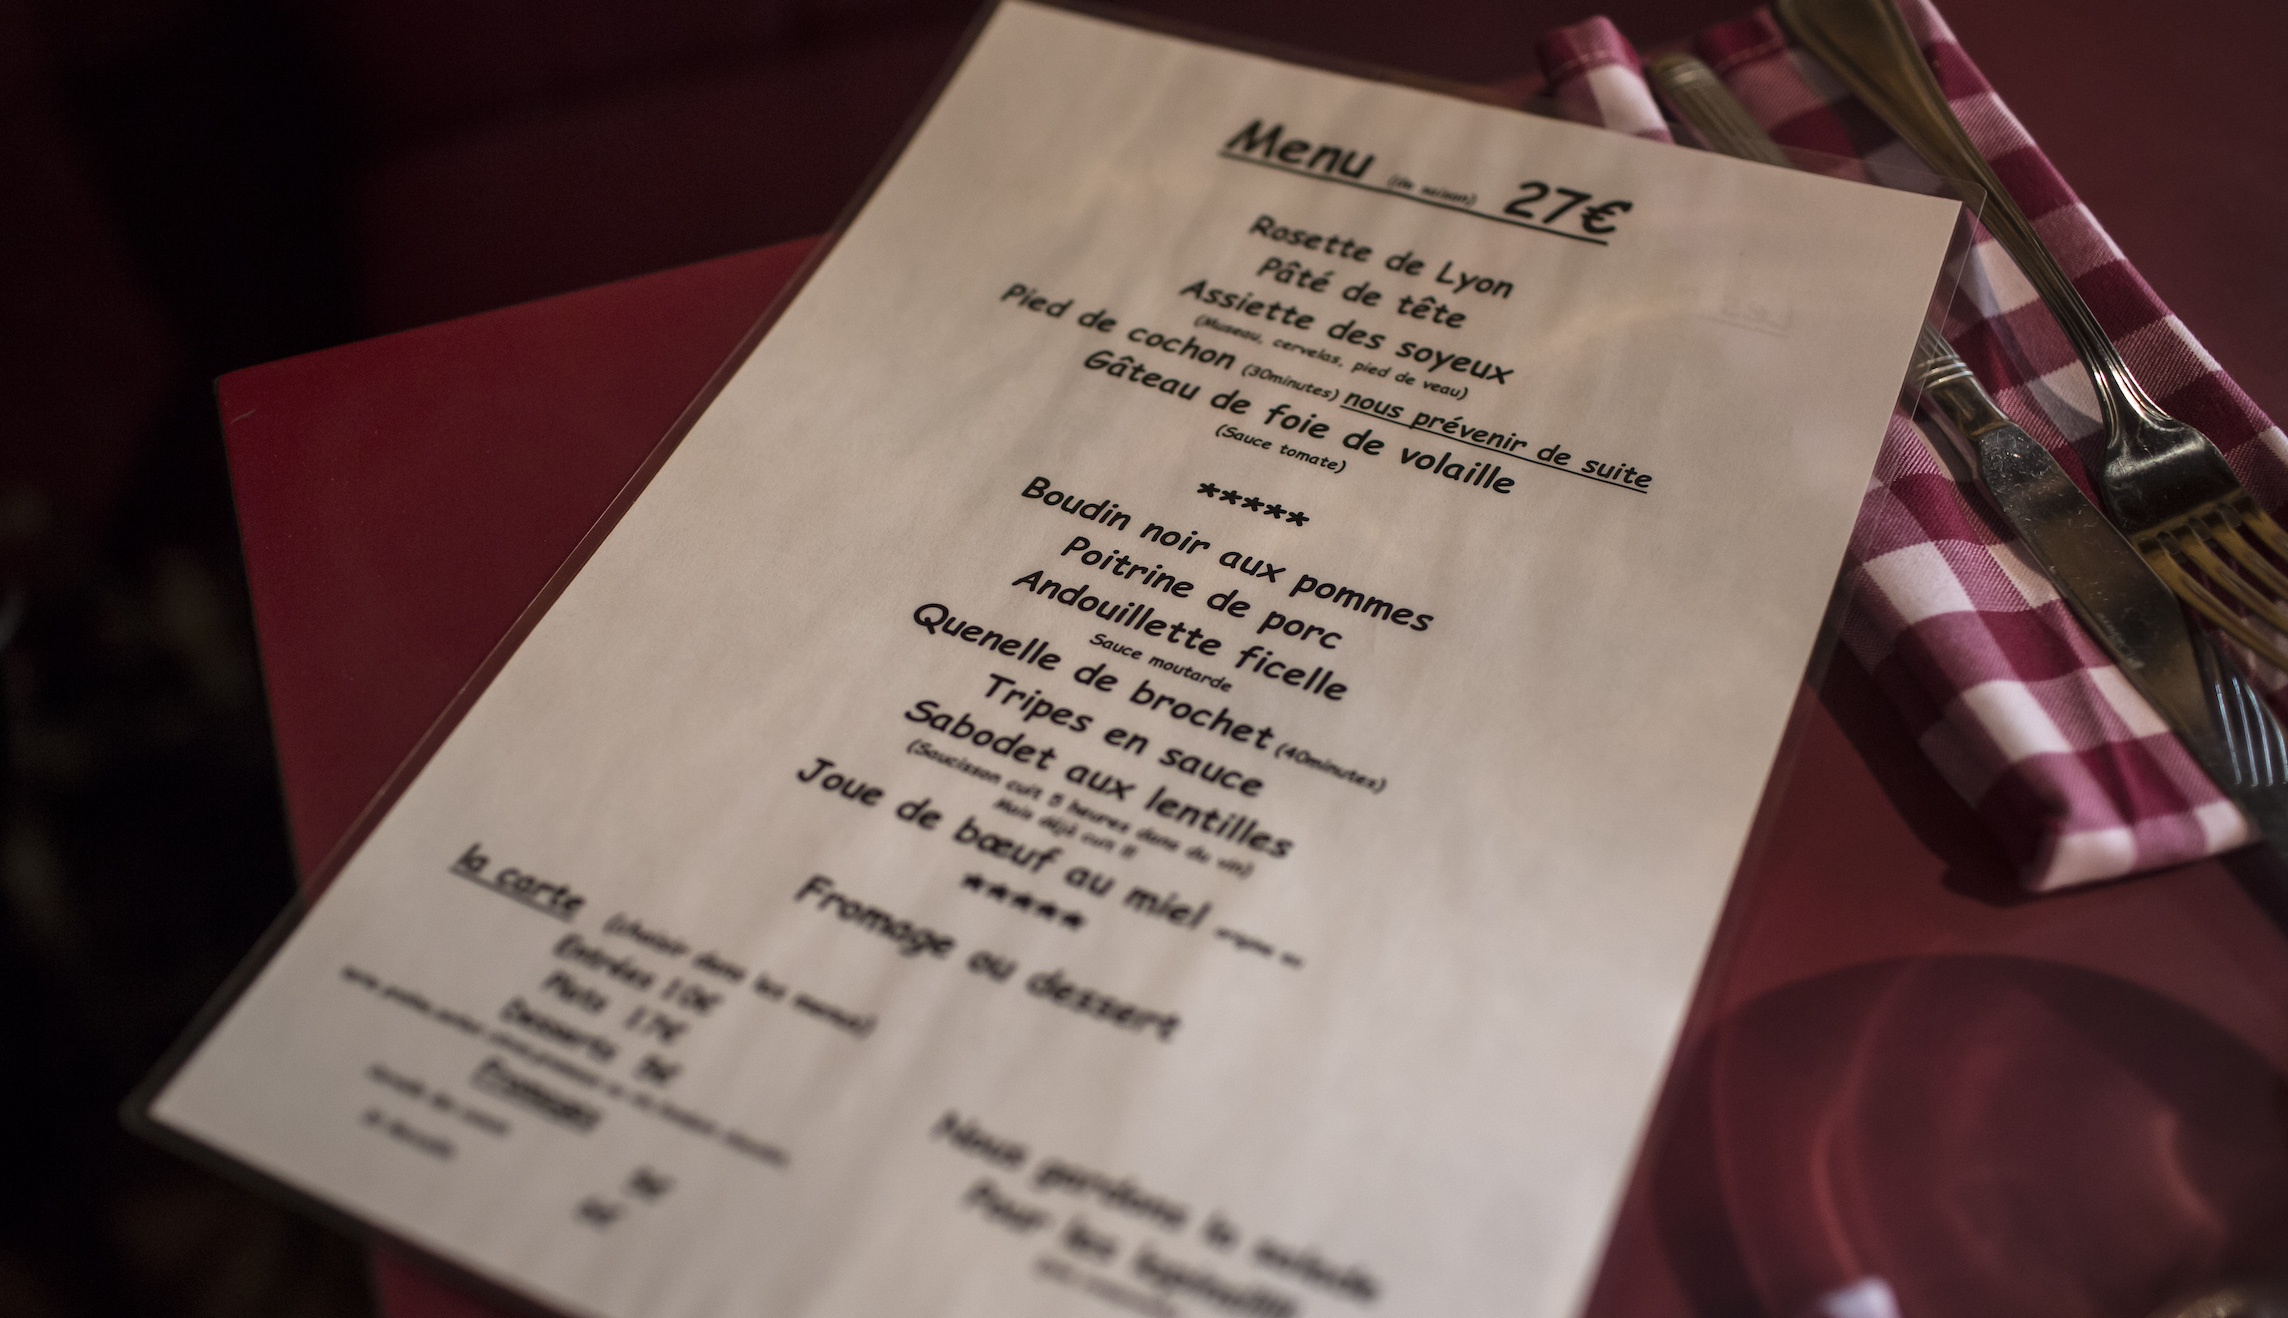 Menu (de saison) 27€
Rosette de Lyon
Pâté de tête
Assiette des soyeux
(Museau, cervelas, pied de veau)
Pied de cochon (30minutes) nous prévenir de suite
Gâteau de foie de volaille
(Sauce tomate)
*****
Boudin noir aux pommes
Poitrine de porc
Andouillette ficelle
Sauce moutarde
Quenelle de brochet (40minutes)
Tripes en sauce
Sabodet aux lentilles
(Saucisson cuit 5 heures dans du vin)
Mais déjà cuit !!
Joue de bœuf au miel
*****
Fromage ou dessert
la carte (choisir dans les menus)
Entrées 10€
Plats 17€
Desserts
Fromages
Nous gardons la salade
Pour les lapins!!!!